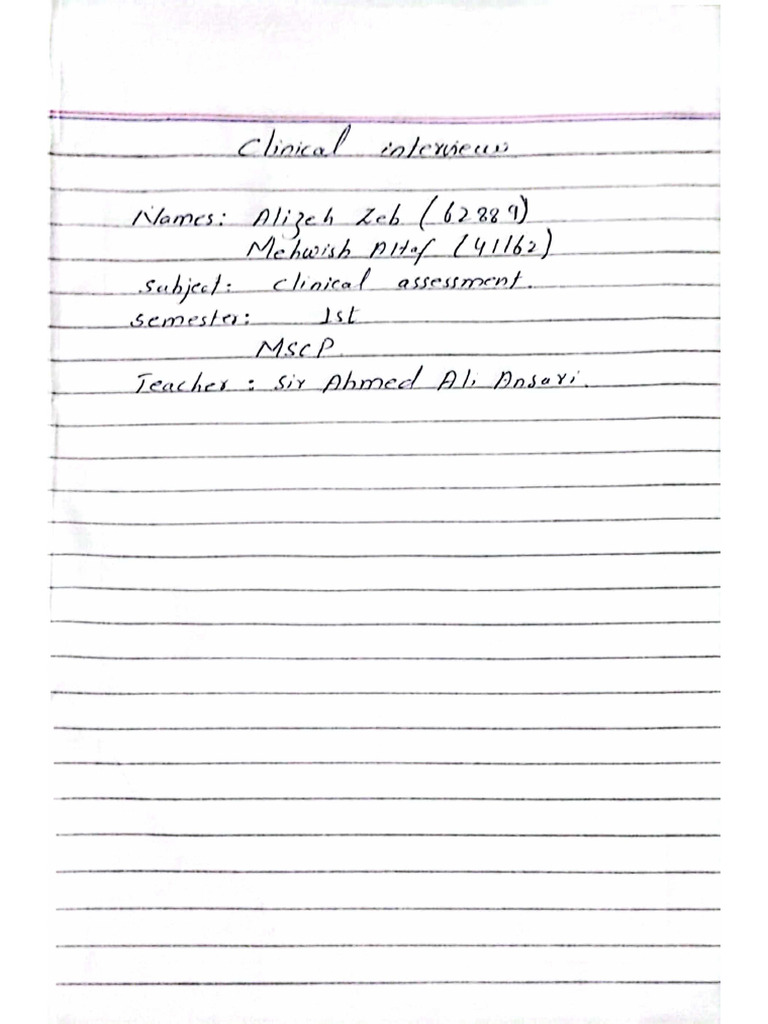 Clinical interviews
Names: Alizeh Zeb (62889)
Mehwish Altaf (41162)
subject: clinical assessment.
semester: 1st
MSCP
Teacher: Sir Ahmed Ali Ansari.